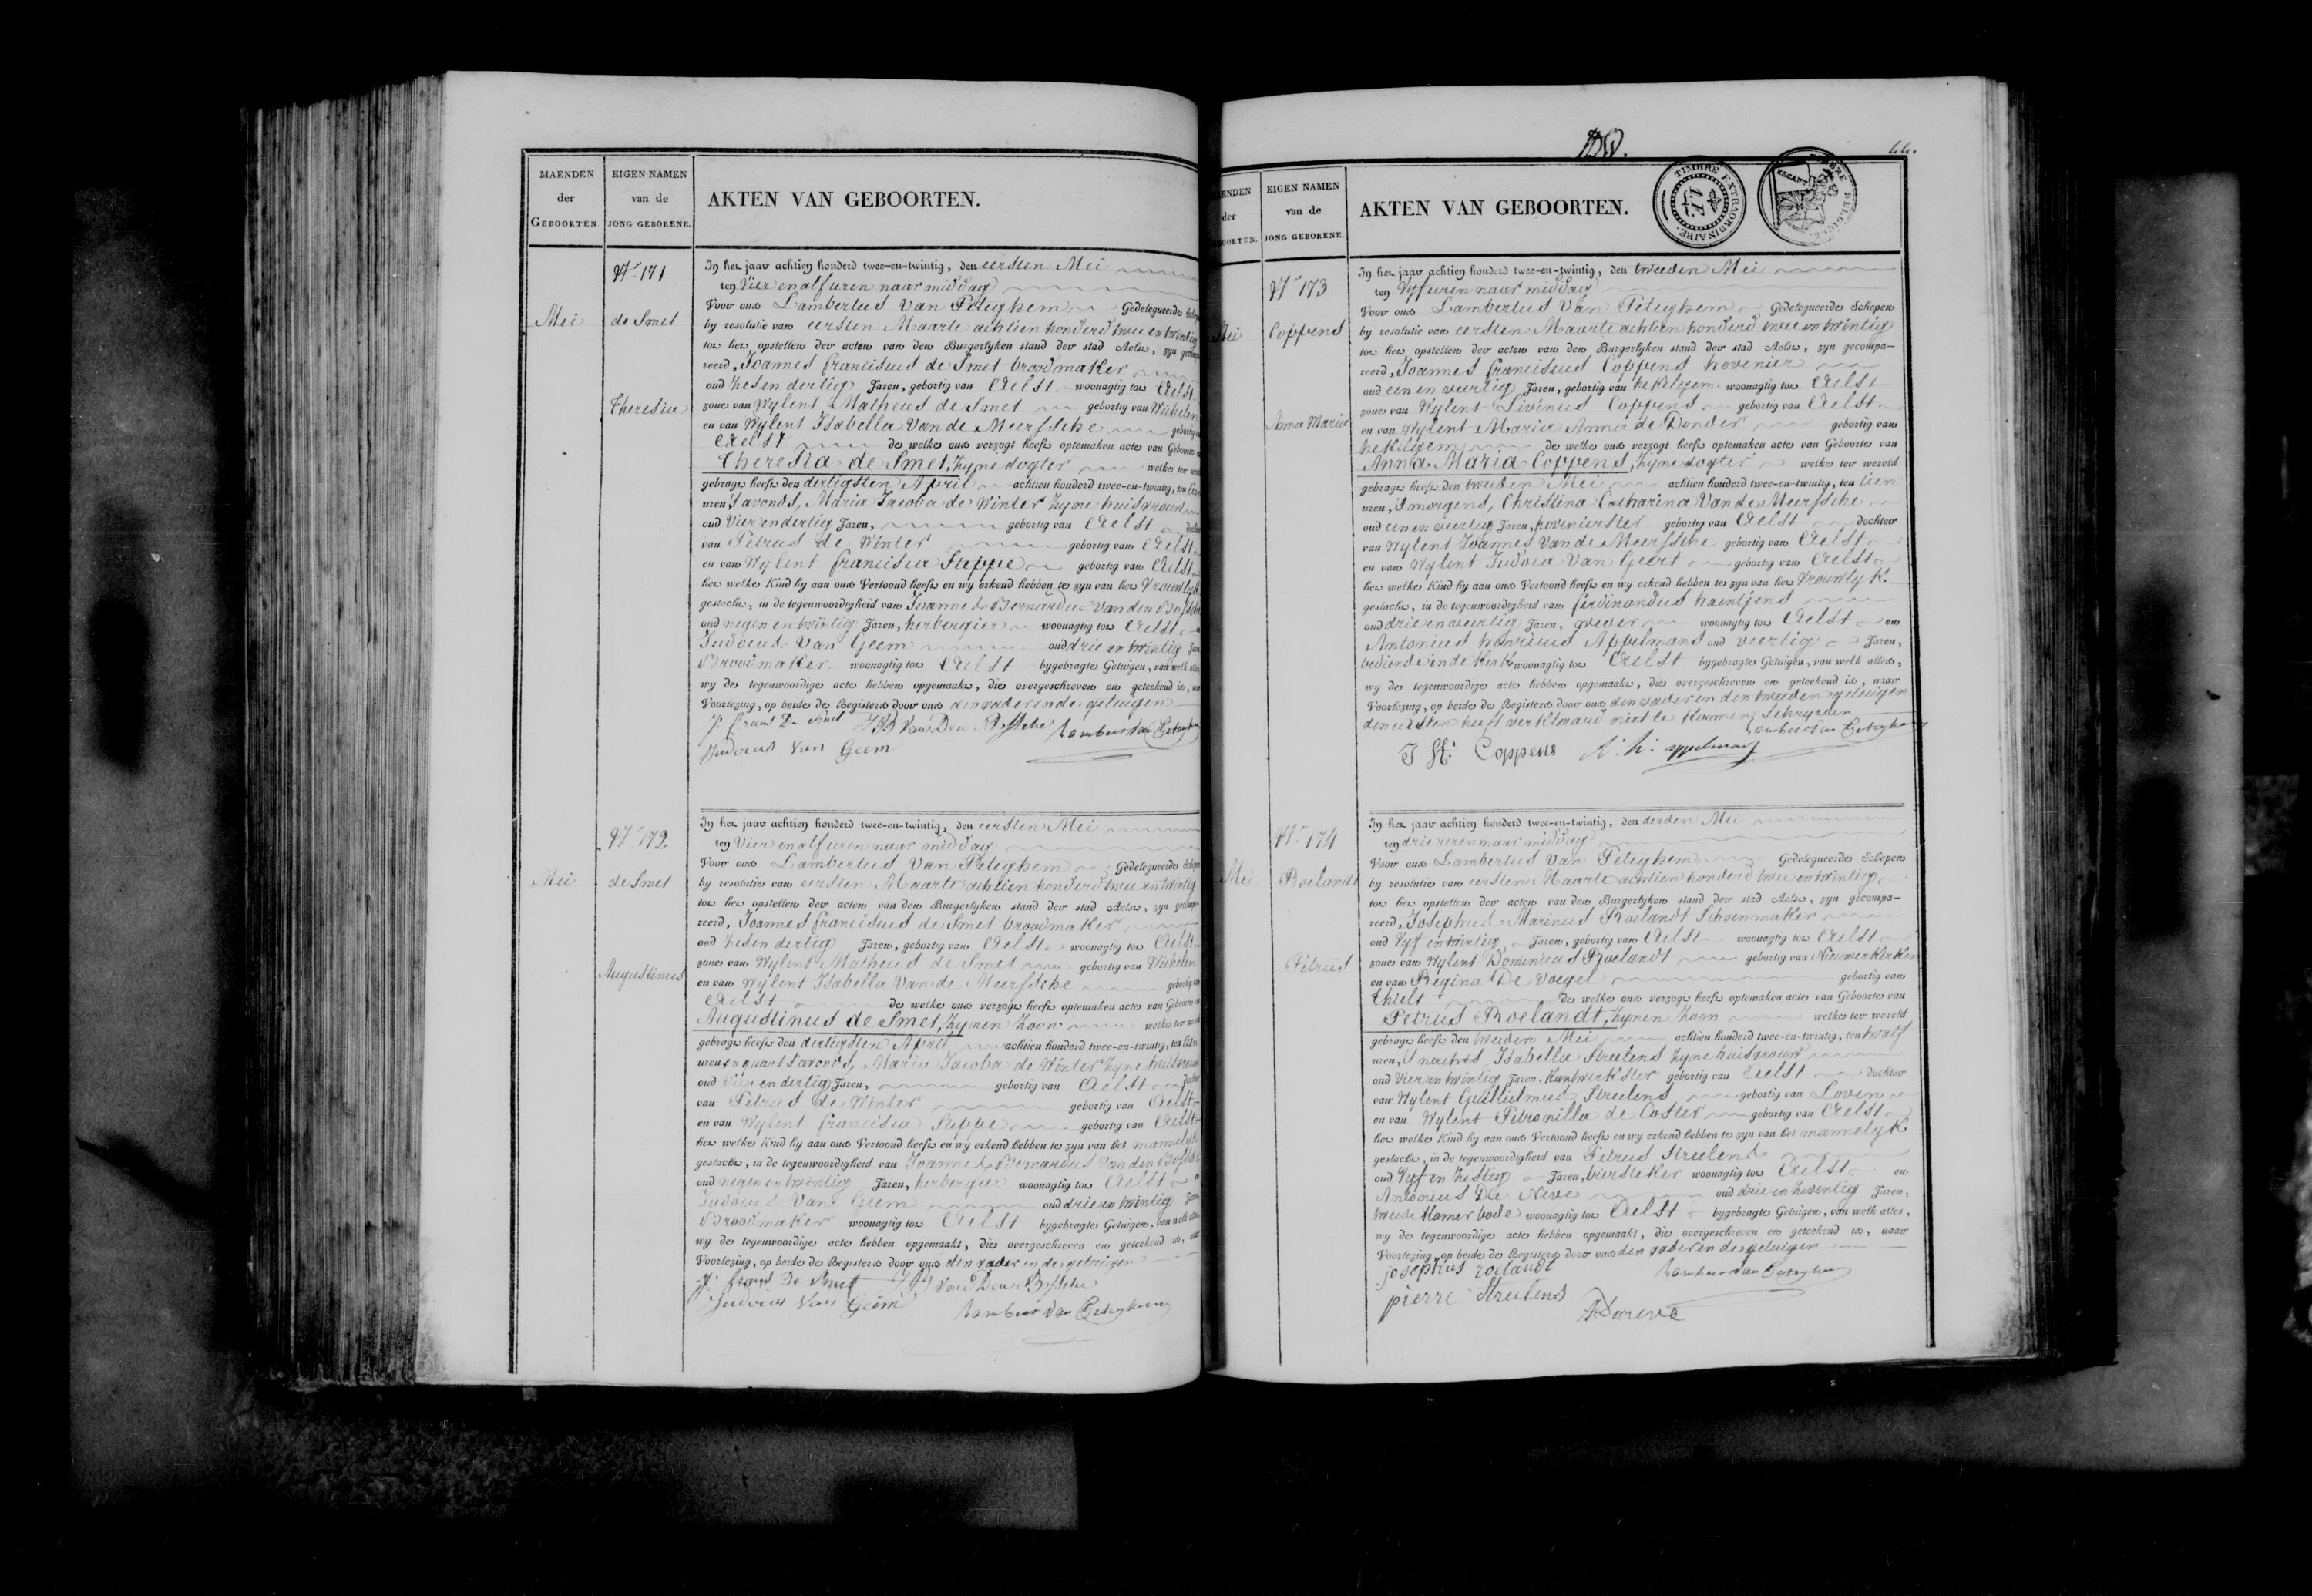 MAENDEN
der
GEBOORTEN
EIGEN NAMEN
van de
JONG GEBORENE.
AKTEN VAN GEBOORTEN.
N.r 171
Mei
de Smet
Theresia
In het jaar achtien honderd twee-en-twintig, den eersten Mei
ten Vier en alf uren naar middag
Voor ons Lambertus Van Peteghem Gedelegueerde Schepen
by resolutie van eersten Maarte achtien honderd twee en twintig
tot het opstellen der acten van den Burgerlyken stand der stad Aelst, zyn gecompa-
reerd, Joannes franciscus de Smet broodmaker
oud zesen dertig Jaren, gebortig van Aelst woonagtig tot Aelst
zone van Wylent Matheus de Smet gebortig van Wichelen
en van Wylent Isabella Van de Meerssche gebortig van
Aelst de welke ons verzogt heeft optemaken acte van Geboorte van
Theresia de Smet, zyne dogter welke ter wereld
gebragt heeft den dertigsten April achtien honderd twee-en-twintig, ten
uren S'avonds, Maria Jacoba de Winter zyne huisvrouw
oud Vier en dertig Jaren, gebortig van Aelst dochter
van Petrus de Winter gebortig van Aelst
en van Wylent francisca Steppe gebortig van Aelst
het welke Kind hy aan ons Vertoond heeft en wy erkend hebben te zyn van het Vrouwlyk
geslacht, in de tegenwoordigheid van Joannes Bernardus Van den Bossche
oud negen en twintig Jaren, herbergier woonagtig tot Aelst
Judocus Van Geem oud drie en twintig Jaren
Broodmaker woonagtig tot Aelst bygebragte Getuigen, van welk alles
wy de tegenwoordige acte hebben opgemaakt, die overgeschreven en geteekend is, naar
Voorlezing, op beide de Registers door ons den vader en de getuigen
J. frans De Smet J B Van Den Bossche Lambert Van Peteghem
Judocus Van Geem
N.r 172
Mei
de Smet
Augustinus
In het jaar achtien honderd twee-en-twintig, den eersten Mei
ten Vier en alf uren naar middag
Voor ons Lambertus Van Peteghem Gedelegueerde Schepen
by resolutie van eersten Maarte achtien honderd twee en twintig
tot het opstellen der acten van den Burgerlyken stand der stad Aelst, zyn gecompa-
reerd, Joannes franciscus de Smet broodmaker
oud zesen dertig Jaren, gebortig van Aelst woonagtig tot Aelst
zone van Wylent Matheus de Smet gebortig van Wichelen
en van Wylent Isabella Van de Meerssche gebortig van
Aelst de welke ons verzogt heeft optemaken acte van Geboorte van
Augustinus de Smet, zynen zoon welke ter wereld
gebragt heeft den dertigsten April achtien honderd twee-en-twintig, ten
uren en quart Savonds, Maria Jacoba de Winter zyne huisvrouw
oud Vier en dertig Jaren, gebortig van Aelst dochter
van Petrus de Winter gebortig van Aelst
en van Wylent francisca Steppe gebortig van Aelst
het welke Kind hy aan ons Vertoond heeft en wy erkend hebben te zyn van het mannelyk
geslacht, in de tegenwoordigheid van Joannes Bernardus Van den Bossche
oud negen en twintig Jaren, herbergier woonagtig tot Aelst
Judocus Van Geem oud drie en twintig Jaren
Broodmaker woonagtig tot Aelst bygebragte Getuigen, van welk alles
wy de tegenwoordige acte hebben opgemaakt, die overgeschreven en geteekend is, naar
Voorlezing, op beide de Registers door ons den vader en de getuigen
J. frans De Smet J B Van Den Bossche
Judocus Van Geem Lambert Van Peteghem
44.
ENDEN
der
BOORTEN.
EIGEN NAMEN
van de
JONG GEBORENE.
AKTEN VAN GEBOORTEN.
TIMBRE EXTRAORDINAIRE.
N.r 173
Mei
Coppens
Anna Maria
In het jaar achtien honderd twee-en-twintig, den tweeden Mei
ten Vyf uren naar middag
Voor ons Lambertus Van Peteghem Gedelegueerde Schepen
by resolutie van eersten Maarte achtien honderd twee en twintig
tot het opstellen der acten van den Burgerlyken stand der stad Aelst, zyn gecompa-
reerd, Joannes franciscus Coppens hovenier
oud een en veertig Jaren, gebortig van hekelgem woonagtig tot Aelst
zone van Wylent Livinus Coppens gebortig van Aelst
en van Wylent Maria Anna de Donder gebortig van
hekelgem de welke ons verzogt heeft optemaken acte van Geboorte van
Anna Maria Coppens, zyne dogter welke ter wereld
gebragt heeft den tweeden Mei achtien honderd twee-en-twintig, ten tien
uren, Smorgens, Christina Catharina Van de Meerssche
oud een en veertig Jaren, hovenierster gebortig van Aelst dochter
van Wylent Joannes Van de Meerssche gebortig van Aelst
en van Wylent Judoca Van Geert gebortig van Aelst
het welke Kind hy aan ons Vertoond heeft en wy erkend hebben te zyn van het Vrouwlyk
geslacht, in de tegenwoordigheid van ferdinandus haentjens
oud drie en veertig Jaren, wever woonagtig tot Aelst en
Antonius henricus Appelmans oud veertig Jaren,
bediende in de Kerk woonagtig tot Aelst bygebragte Getuigen, van welk alles,
wy de tegenwoordige acte hebben opgemaakt, die overgeschreven en geteekend is, naar
Voorlezing, op beide de Registers door ons den vader en den tweeden getuigen
den eersten heeft verklaard niet te Kunnen Schryven
Lambert Van Peteghem
J F: Coppens A: h: appelmans
N.r 174
Mei
Roelandt
Petrus
In het jaar achtien honderd twee-en-twintig, den derden Mei
ten drie uren naar middag
Voor ons Lambertus Van Peteghem Gedelegueerde Schepen
by resolutie van eersten Maarte achtien honderd twee en twintig
tot het opstellen der acten van den Burgerlyken stand der stad Aelst, zyn gecompa-
reerd, Josephus Marinus Roelandt Schoenmaker
oud Vyf en twintig Jaren, gebortig van Aelst woonagtig tot Aelst
zone van Wylent Dominicus Roelandt gebortig van Nieuwerkerken
en van Regina De Voegel gebortig van
Thielt de welke ons verzogt heeft optemaken acte van Geboorte van
Petrus Roelandt, zynen zoon welke ter wereld
gebragt heeft den tweeden Mei achtien honderd twee-en-twintig, ten twalf
uren, S'nachts Isabella Streulens zyne huisvrouw
oud Vier en twintig Jaren, Kantwerkster gebortig van Aelst dochter
van Wylent Guillielmus Streulens gebortig van Loven
en van Wylent Petronilla de Coster gebortig van Aelst
het welke Kind hy aan ons Vertoond heeft en wy erkend hebben te zyn van het mannelyk
geslacht, in de tegenwoordigheid van Petrus Streulens
oud Vyf en zestig Jaren, biersteker woonagtig tot Aelst en
Antonius De Neve oud drie en zeventig Jaren,
tweede Kamer bode woonagtig tot Aelst bygebragte Getuigen, van welk alles,
wy de tegenwoordige acte hebben opgemaakt, die overgeschreven en geteekend is, naar
Voorlezing, op beide de Registers door ons den vader en de getuigen
josephus roelandt Lambert Van Peteghem
pierre Streulens
A Deneve